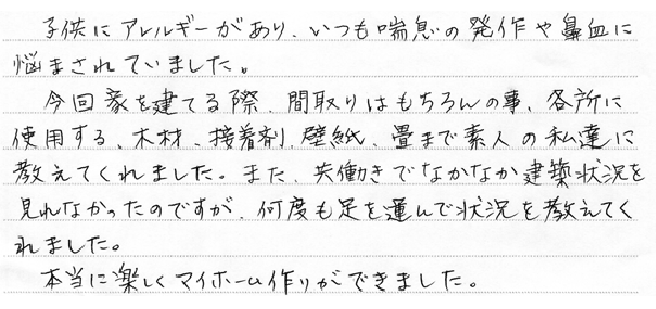 子供にアレルギーがあり、いつも喘息の発作や鼻血に
悩まされていました。
今回家を建てる際、間取りはもちろんの事、各所に
使用する、木材、接着剤、壁紙、畳まで素人の私達に
教えてくれました。また、共働きでなかなか建築状況を
見れなかったのですが、何度も足を運んで状況を教えてく
れました。
本当に楽しくマイホーム作りができました。